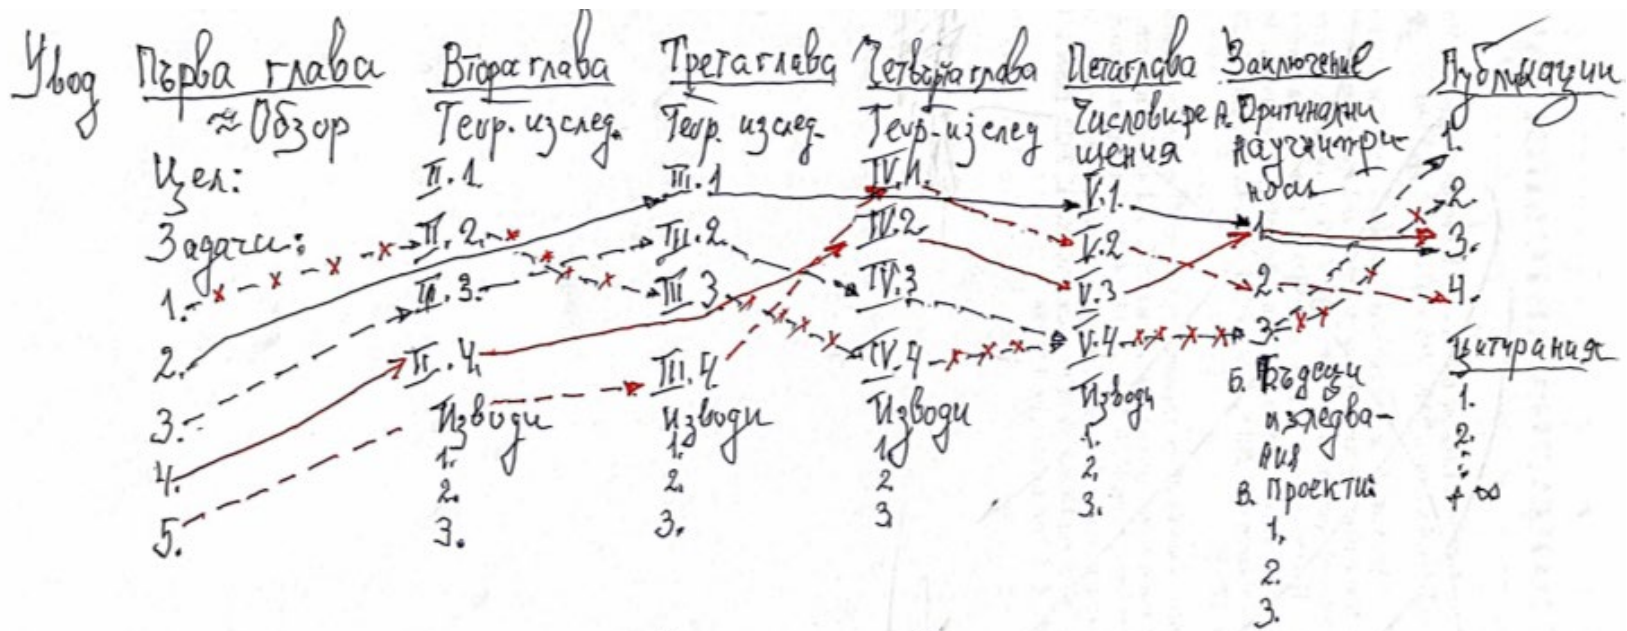 Увод
Първа глава
≈ Обзор
Цел:
Задачи:
1.
2.
3.
4.
5.
Втора глава
Теор. изслед.
II.1
II.2.
II.3.
II.4.
Изводи
1.
2.
3.
Трета глава
Теор. изслед.
III.1
III.2.
III.3
III.4.
Изводи
1.
2.
3.
Четвърта глава
Теор. изслед
IV.1.
IV.2.
IV.3
IV.4
Изводи
1.
2
3.
Пета глава
Числови ре
шения
V.1.
V.2
V.3
V.4
Изводи
1.
2.
3.
Заключение
А. Оригинални
научни при-
носи
1.
2.
3.
Б. Бъдещи
изследва-
ния
В. Проекти:
1.
2.
3.
Публикации
1.
2.
3.
4.
Цитирания
1.
2.
:
+ ∞